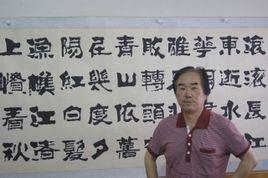 滚滚長江
東逝水
華
雄
敗轉頭空
青山依舊
在幾度夕
陽紅白髮
漁樵江渚
上慣看秋